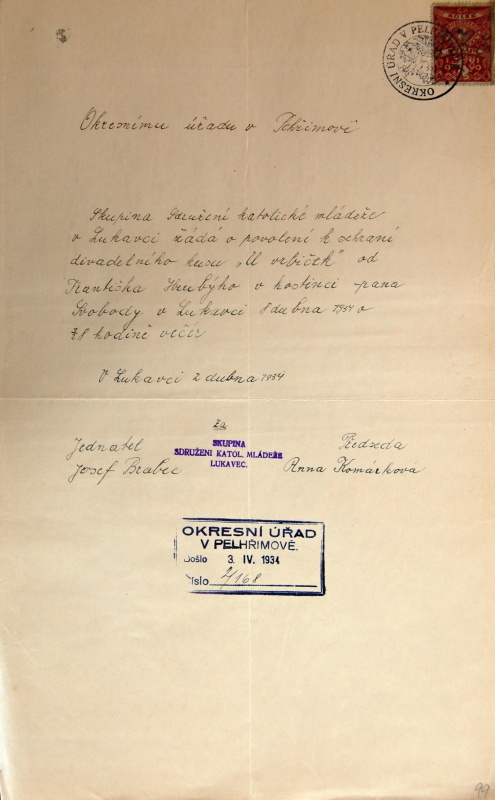 OKRESNÍ ÚŘAD V PELHŘIMOVĚ
KOLEK
Okresnímu úřadu v Pelhřimově
Skupina Sdružení katolické mládeže
v Lukavci žádá o povolení k sehraní
divadelního kusu „U vrbiček" od
Františka Hrubýho v hostinci pana
Svobody v Lukavci 8 dubna 1934 v
8 hodině večer
V Lukavci 2 dubna 1934
Za
Jednatel
Předseda
SKUPINA
SDRUŽENI KATOL. MLÁDEŽE
LUKAVEC.
Josef Brabec
Anna Komárkova
OKRESNÍ ÚŘAD
V PELHŘIMOVĚ.
Došlo 3. IV. 1934
Číslo 7168
99